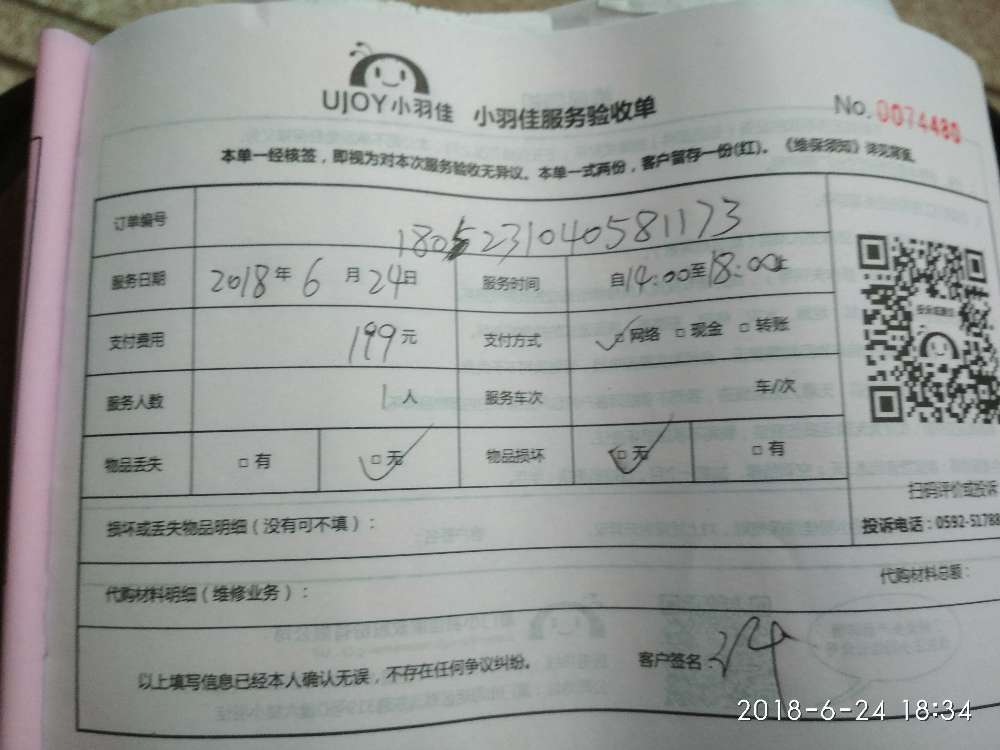 UJOY小羽佳 小羽佳服务验收单
No. 0074480
本单一经核签，即视为对本次服务验收无异议。本单一式两份，客户留存一份(红)。《维保须知》详见背面。
订单编号 1805231040581173
服务日期 2018年 6 月 24日 服务时间 自14:00至18:00止
支付费用 199元 支付方式 □网络 □现金 □转账
服务人数 1人 服务车次 车/次
物品丢失 □有 □无 物品损坏 □无 □有
扫码评价或投诉
投诉电话：0592-51788
损坏或丢失物品明细（没有可不填）：
代购材料明细（维修业务）： 代购材料总额：
以上填写信息已经本人确认无误，不存在任何争议纠纷。 客户签名：
2018-6-24 18:34